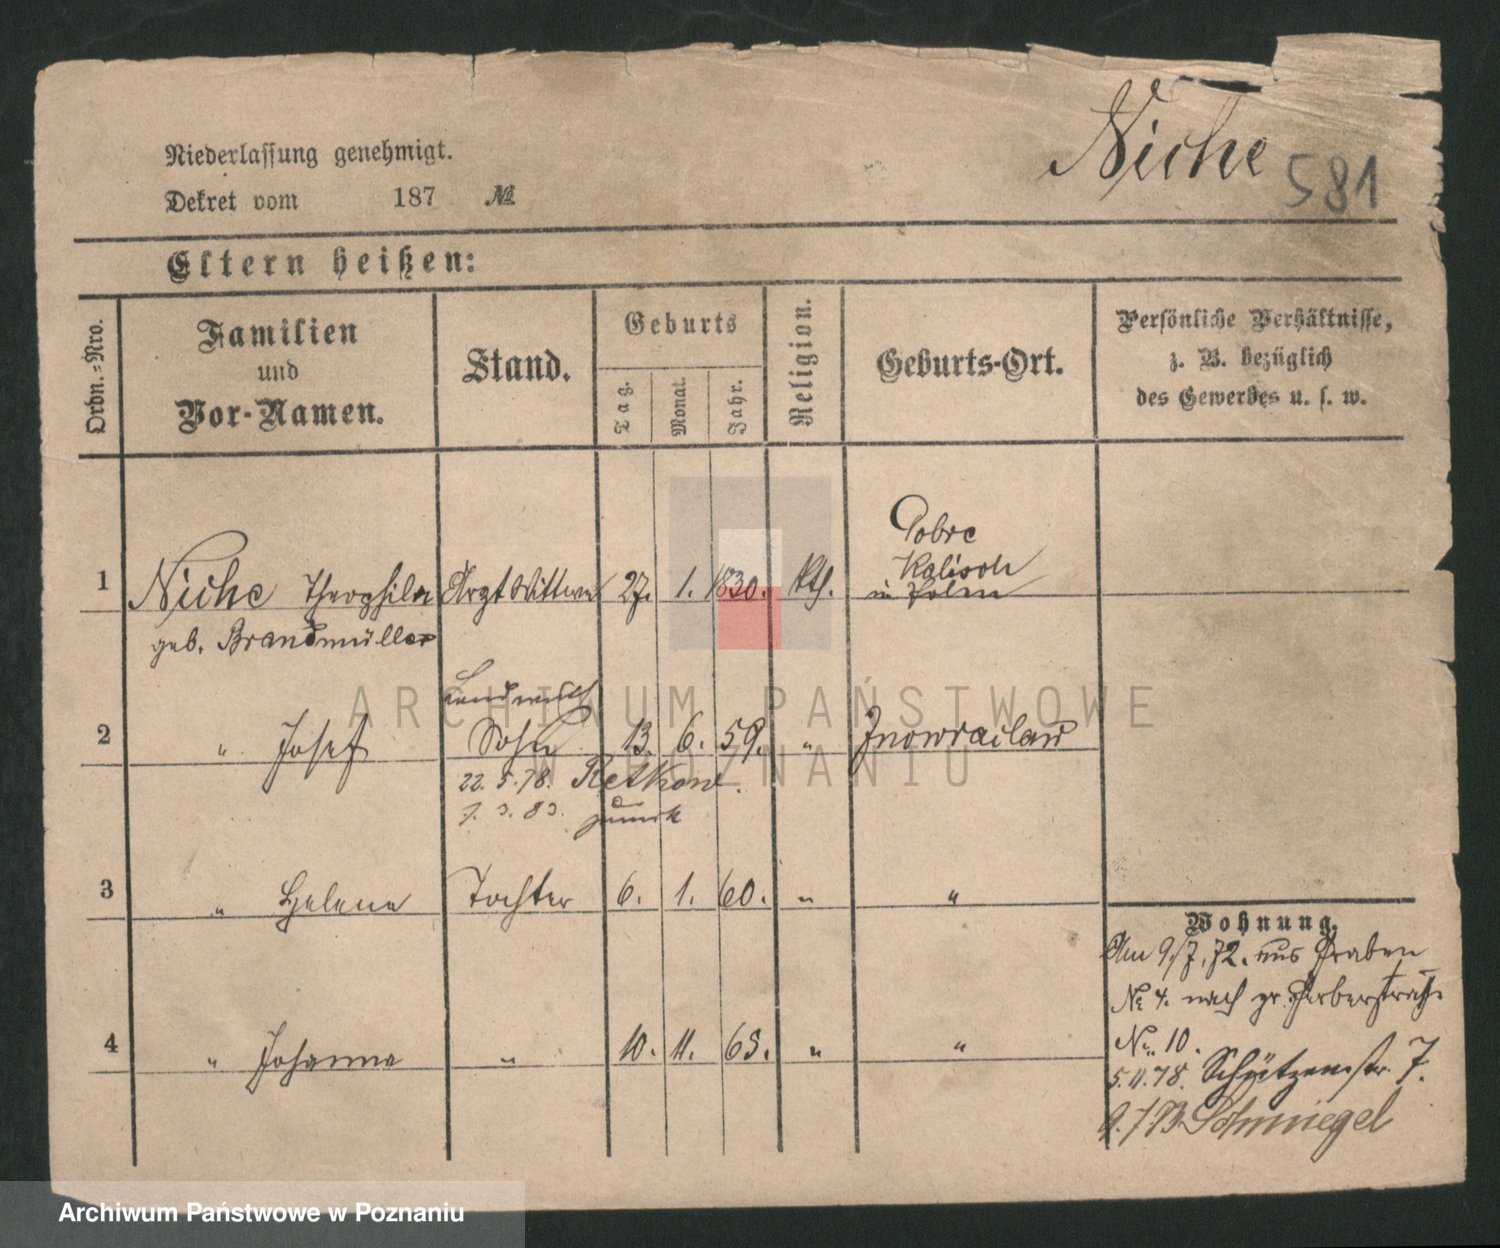 Niche 581
Niederlassung genehmigt.
Dekret vom 187 №
Eltern heißen:
Ordn.-Nro.
Familien
und
Vor-Namen.
Stand.
Geburts
Tag.
Monat.
Jahr.
Religion.
Geburts-Ort.
Persönliche Verhältnisse,
z. B. bezüglich
des Gewerbes u. s. w.
Dobre
Kalisch
1 Niche Theophila Arzt Wittwe 27. 1. 1830. kth. in Polen
geb. Brandmüller
Landwirth
2 " Josef Sohn 13. 6. 59. " Inowraclaw
22. 5. 78. Retkow.
7. 3. 83. zurück
3 " Helene Tochter 6. 1. 60. " "
Wohnung.
Am 9/7. 72. aus Graben
№ 4. nach gr. Gerberstraße
№ 10.
4 " Johanna " 10. 11. 65. " "
5.11.78. Schützenstr. 7.
Schmiegel
ARCHIWUM PAŃSTWOWE
W POZNANIU
Archiwum Państwowe w Poznaniu